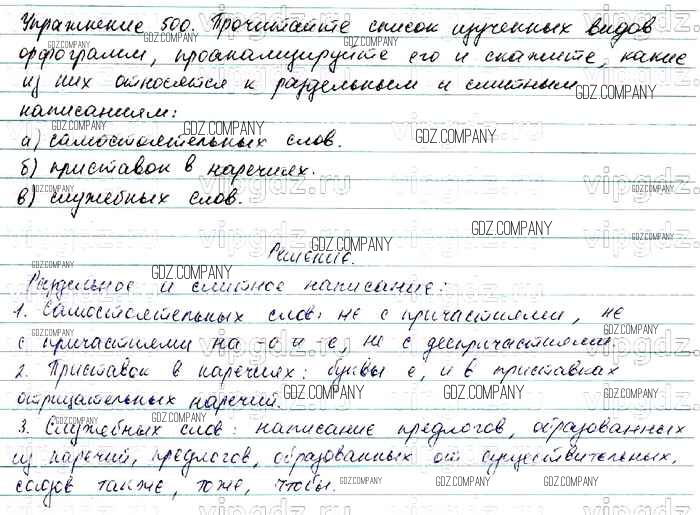 Упражнение 500. Прочитайте список изученных видов
орфограмм, проанализируйте его и скажите, какие
из них относятся к раздельным и слитным
написаниям:
а) самостоятельных слов.
б) приставок в наречиях.
в) служебных слов.
Решение.
Раздельное и слитное написание:
1. Самостоятельных слов: не с причастиями, не
с причастиями на -о и -е, не с деепричастиями.
2. Приставок в наречиях: буквы е, и в приставках
отрицательных наречий.
3. Служебных слов: написание предлогов, образованных
из наречий, предлогов, образованных от существительных,
союзов также, тоже, чтобы.
GDZ.COMPANY
vipgdz.ru